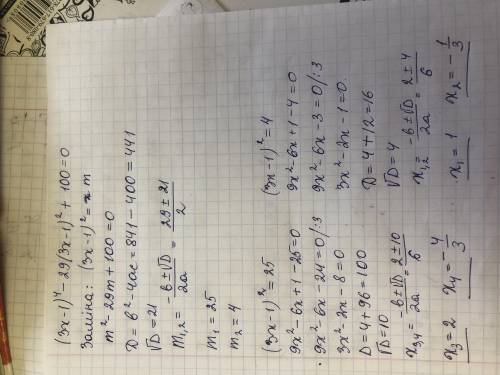 (3x-1)⁴ - 29(3x-1)² + 100 = 0
Заміна: (3x-1)² = m
m² - 29m + 100 = 0
D = b² - 4ac = 841 - 400 = 441
√D = 21
m₁,₂ = (-b ± √D)/2a = (29 ± 21)/2
m₁ = 25
m₂ = 4
(3x-1)² = 25
9x² - 6x + 1 - 25 = 0
9x² - 6x - 24 = 0 /:3
3x² - 2x - 8 = 0
D = 4 + 96 = 100
√D = 10
x₃,₄ = (-b ± √D)/2a = (2 ± 10)/6
x₃ = 2 x₄ = -4/3
(3x-1)² = 4
9x² - 6x + 1 - 4 = 0
9x² - 6x - 3 = 0 /:3
3x² - 2x - 1 = 0
D = 4 + 12 = 16
√D = 4
x₁,₂ = (-b ± √D)/2a = (2 ± 4)/6
x₁ = 1 x₂ = -1/3